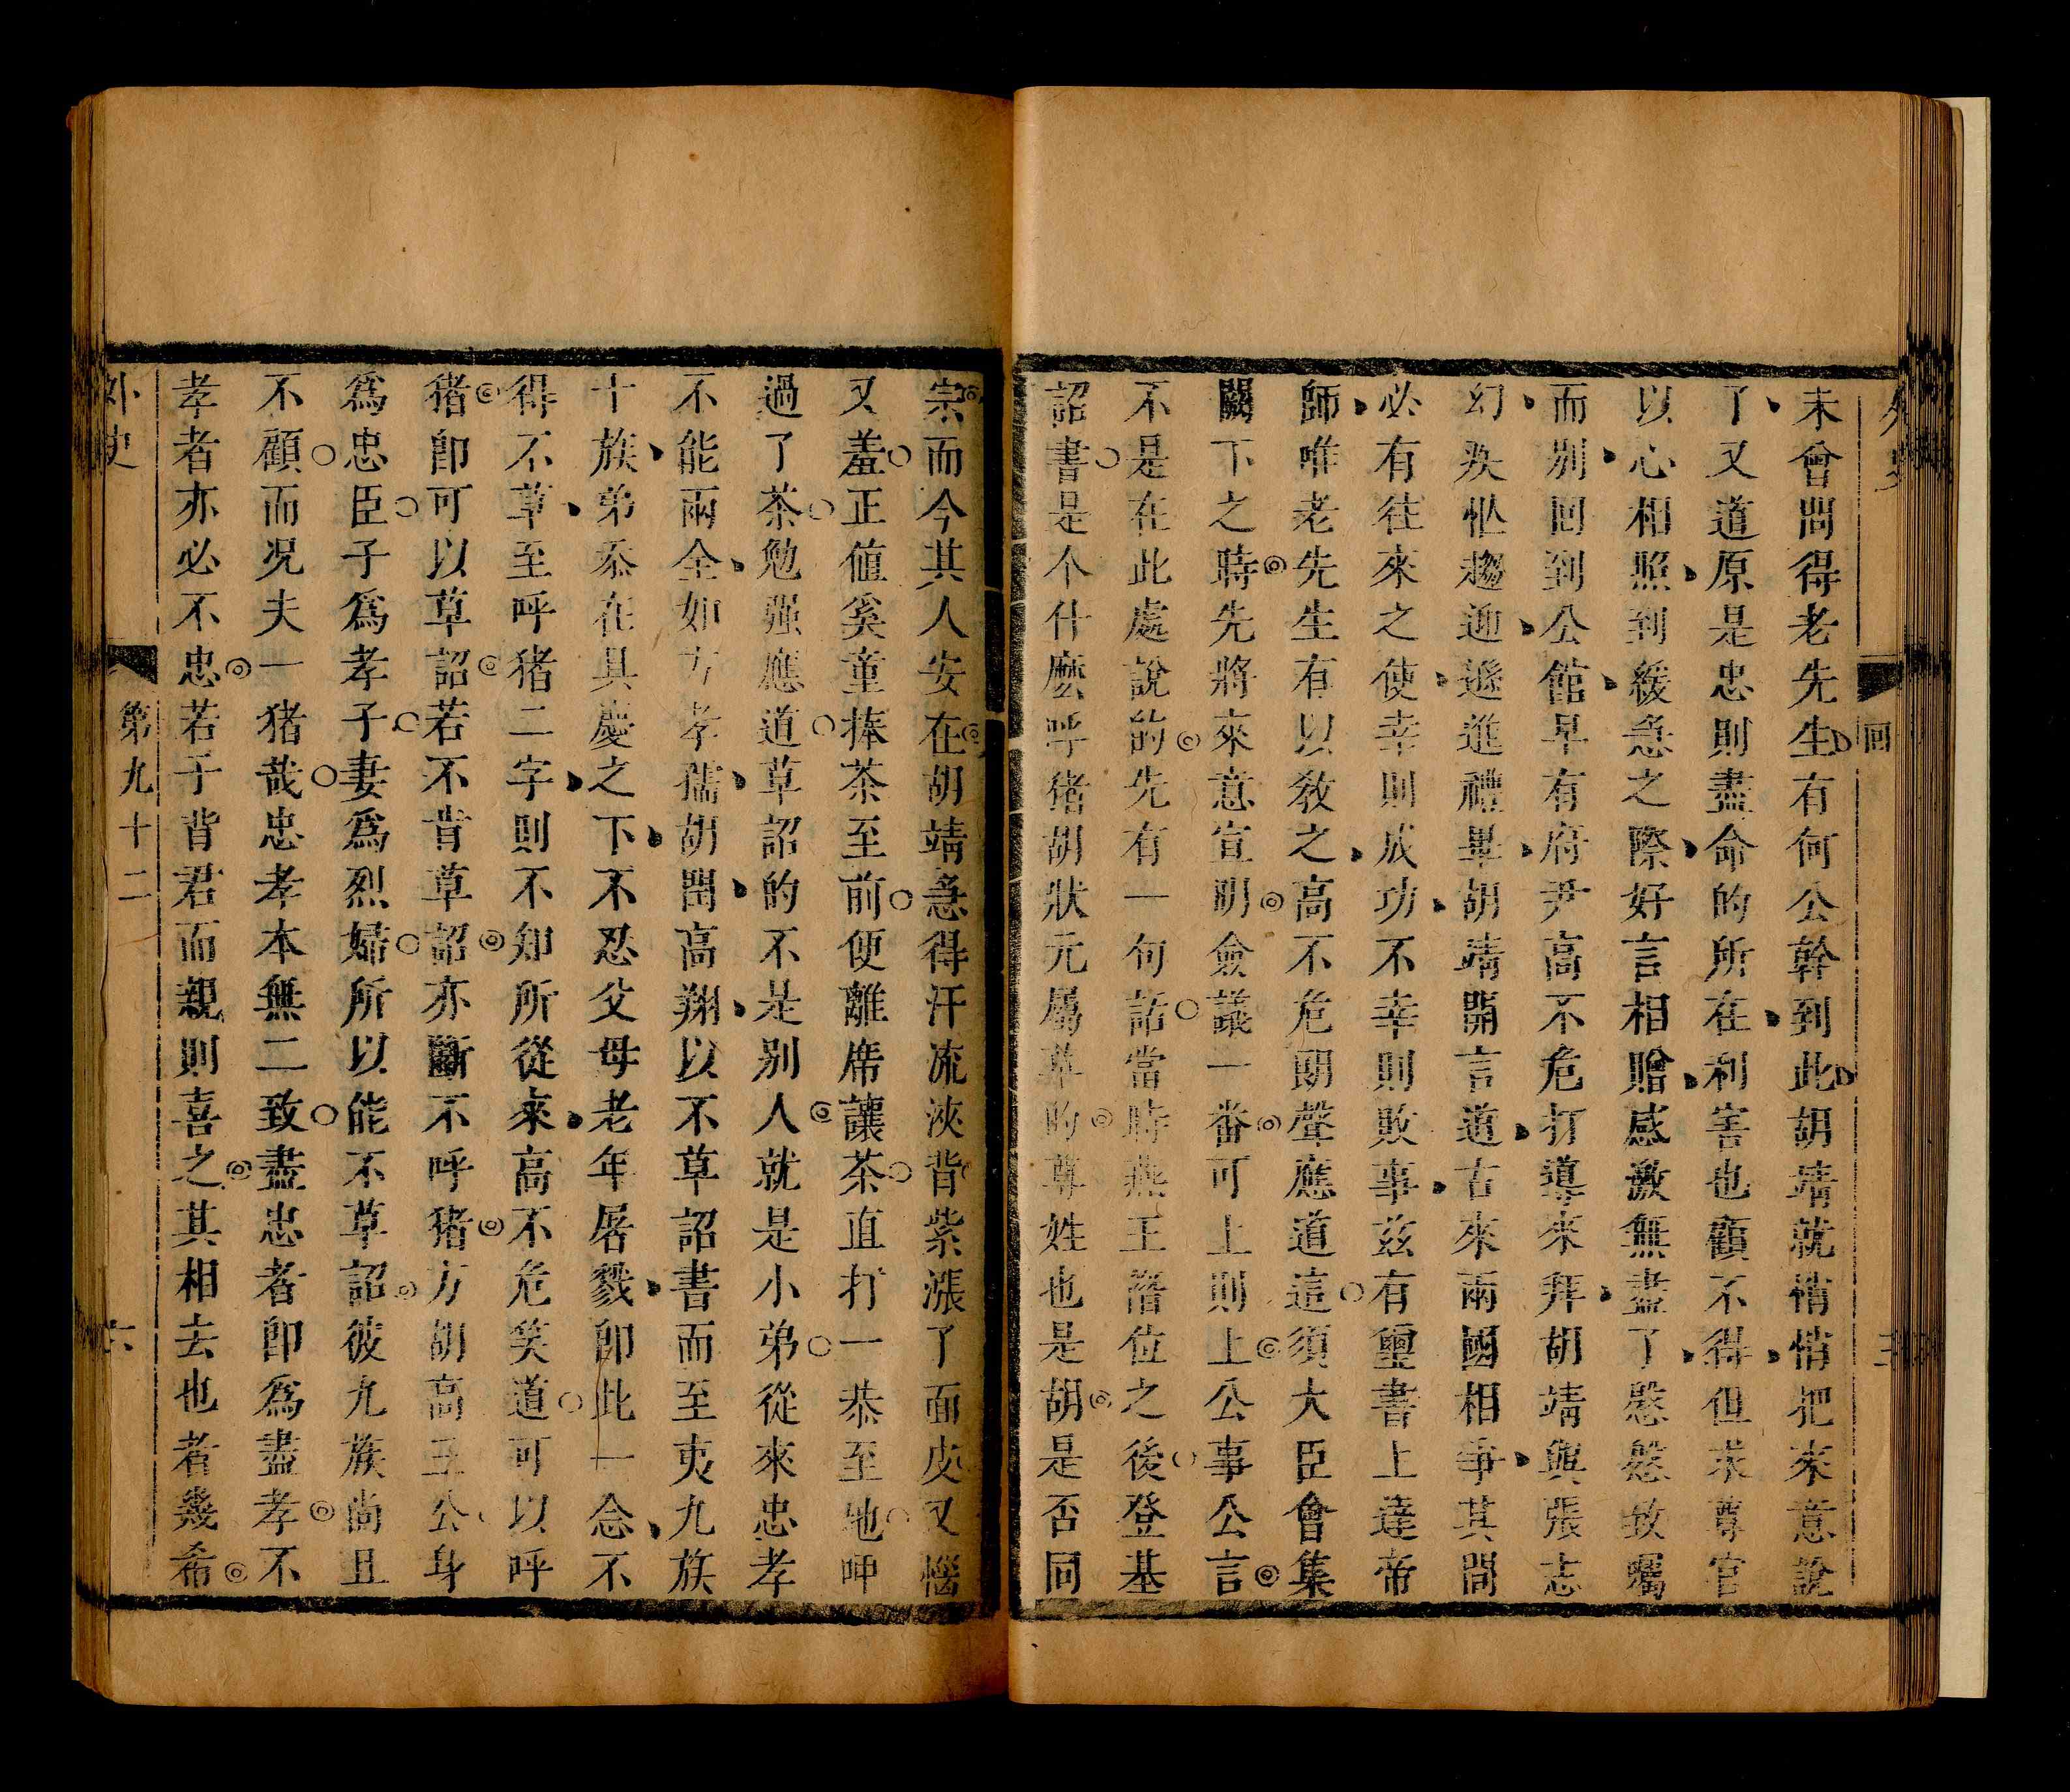 外史
回
未會問得老先生有何公幹到此胡靖就悄悄把來意說
了又道原是忠則盡命的所在利害也顧不得但求尊官
以心相照到緩急之際好言相贈感激無盡了慇懃致囑
而別回到公館早有府尹高不危打導來拜胡靖與張志
幻疾忙趨迎遜進禮畢胡靖開言道古來兩國相爭其間
必有往來之使幸則成功不幸則敗事茲有璽書上達帝
師唯老先生有以敎之高不危朗聲應道這須大臣會集
闕下之時先將來意宣明僉議一番可上則上公事公言
不是在此處說的先有一句話當時燕王僭位之後登基
詔書是个什麽呼猪胡狀元屬草的尊姓也是胡是否同
宗而今其人安在胡靖急得汗流浹背紫漲了面皮又惱
又羞正値奚童捧茶至前便離席讓茶直打一恭至地呷
過了茶勉强應道草詔的不是別人就是小弟從來忠孝
不能兩全如方孝孺胡閏高翔以不草詔書而至夷九族
十族弟忝在具慶之下不忍父母老年屠戮卽此一念不
得不草至呼猪二字則不知所從來高不危笑道可以呼
猪卽可以草詔若不肯草詔亦斷不呼猪方胡高三公身
爲忠臣子爲孝子妻爲烈婦所以能不草詔彼九族尙且
不顧而况夫一猪哉忠孝本無二致盡忠者卽爲盡孝不
孝者亦必不忠若于背君而親則喜之其相去也者幾希
外史
第九十二
六